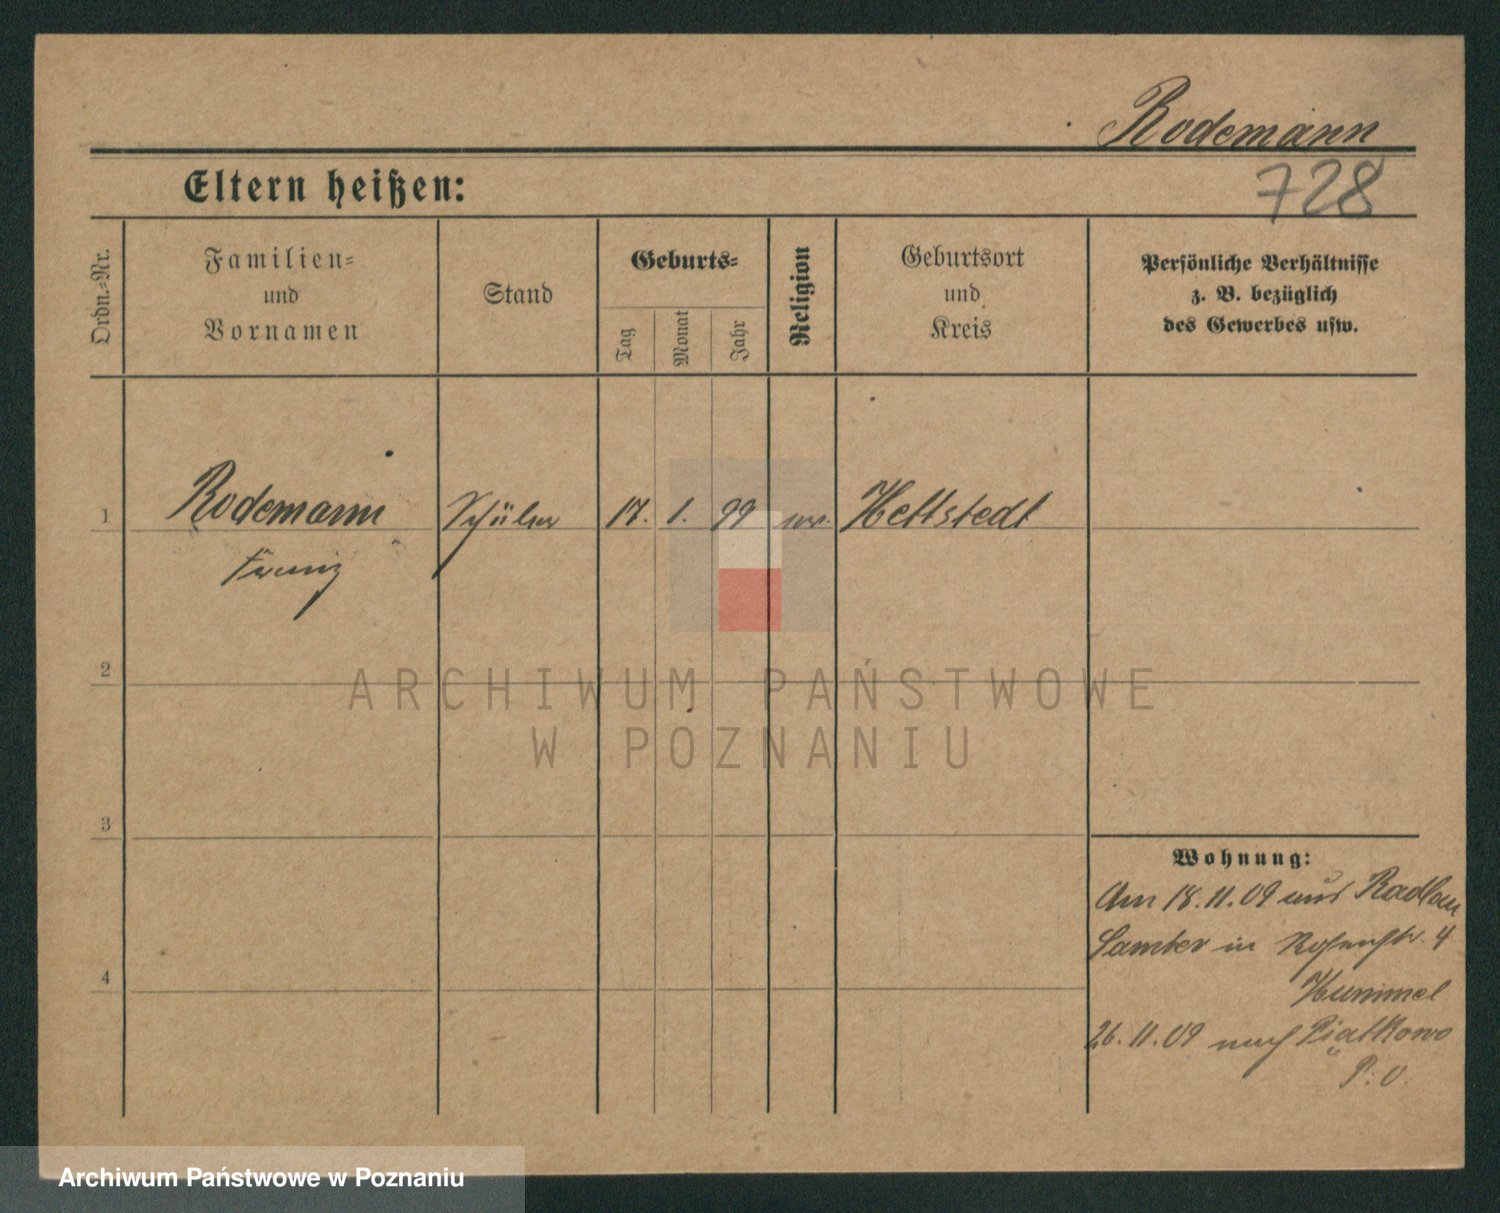 Rodemann
728
Eltern heißen:
Ordn.-Nr.
Familien-
und
Vornamen
Stand
Geburts-
Tag
Monat
Jahr
Religion
Geburtsort
und
Kreis
Persönliche Verhältnisse
z. B. bezüglich
des Gewerbes usw.
1 Rodemann Schüler 17. 1. 99 Hettstedt
Franz
2
3
4
Wohnung:
Am 18.11.09 aus Radlau
Samter in Rosenstr. 4
Hummel
26.11.09 nach Piątkowo
P. O.
ARCHIWUM PAŃSTWOWE
W POZNANIU
Archiwum Państwowe w Poznaniu